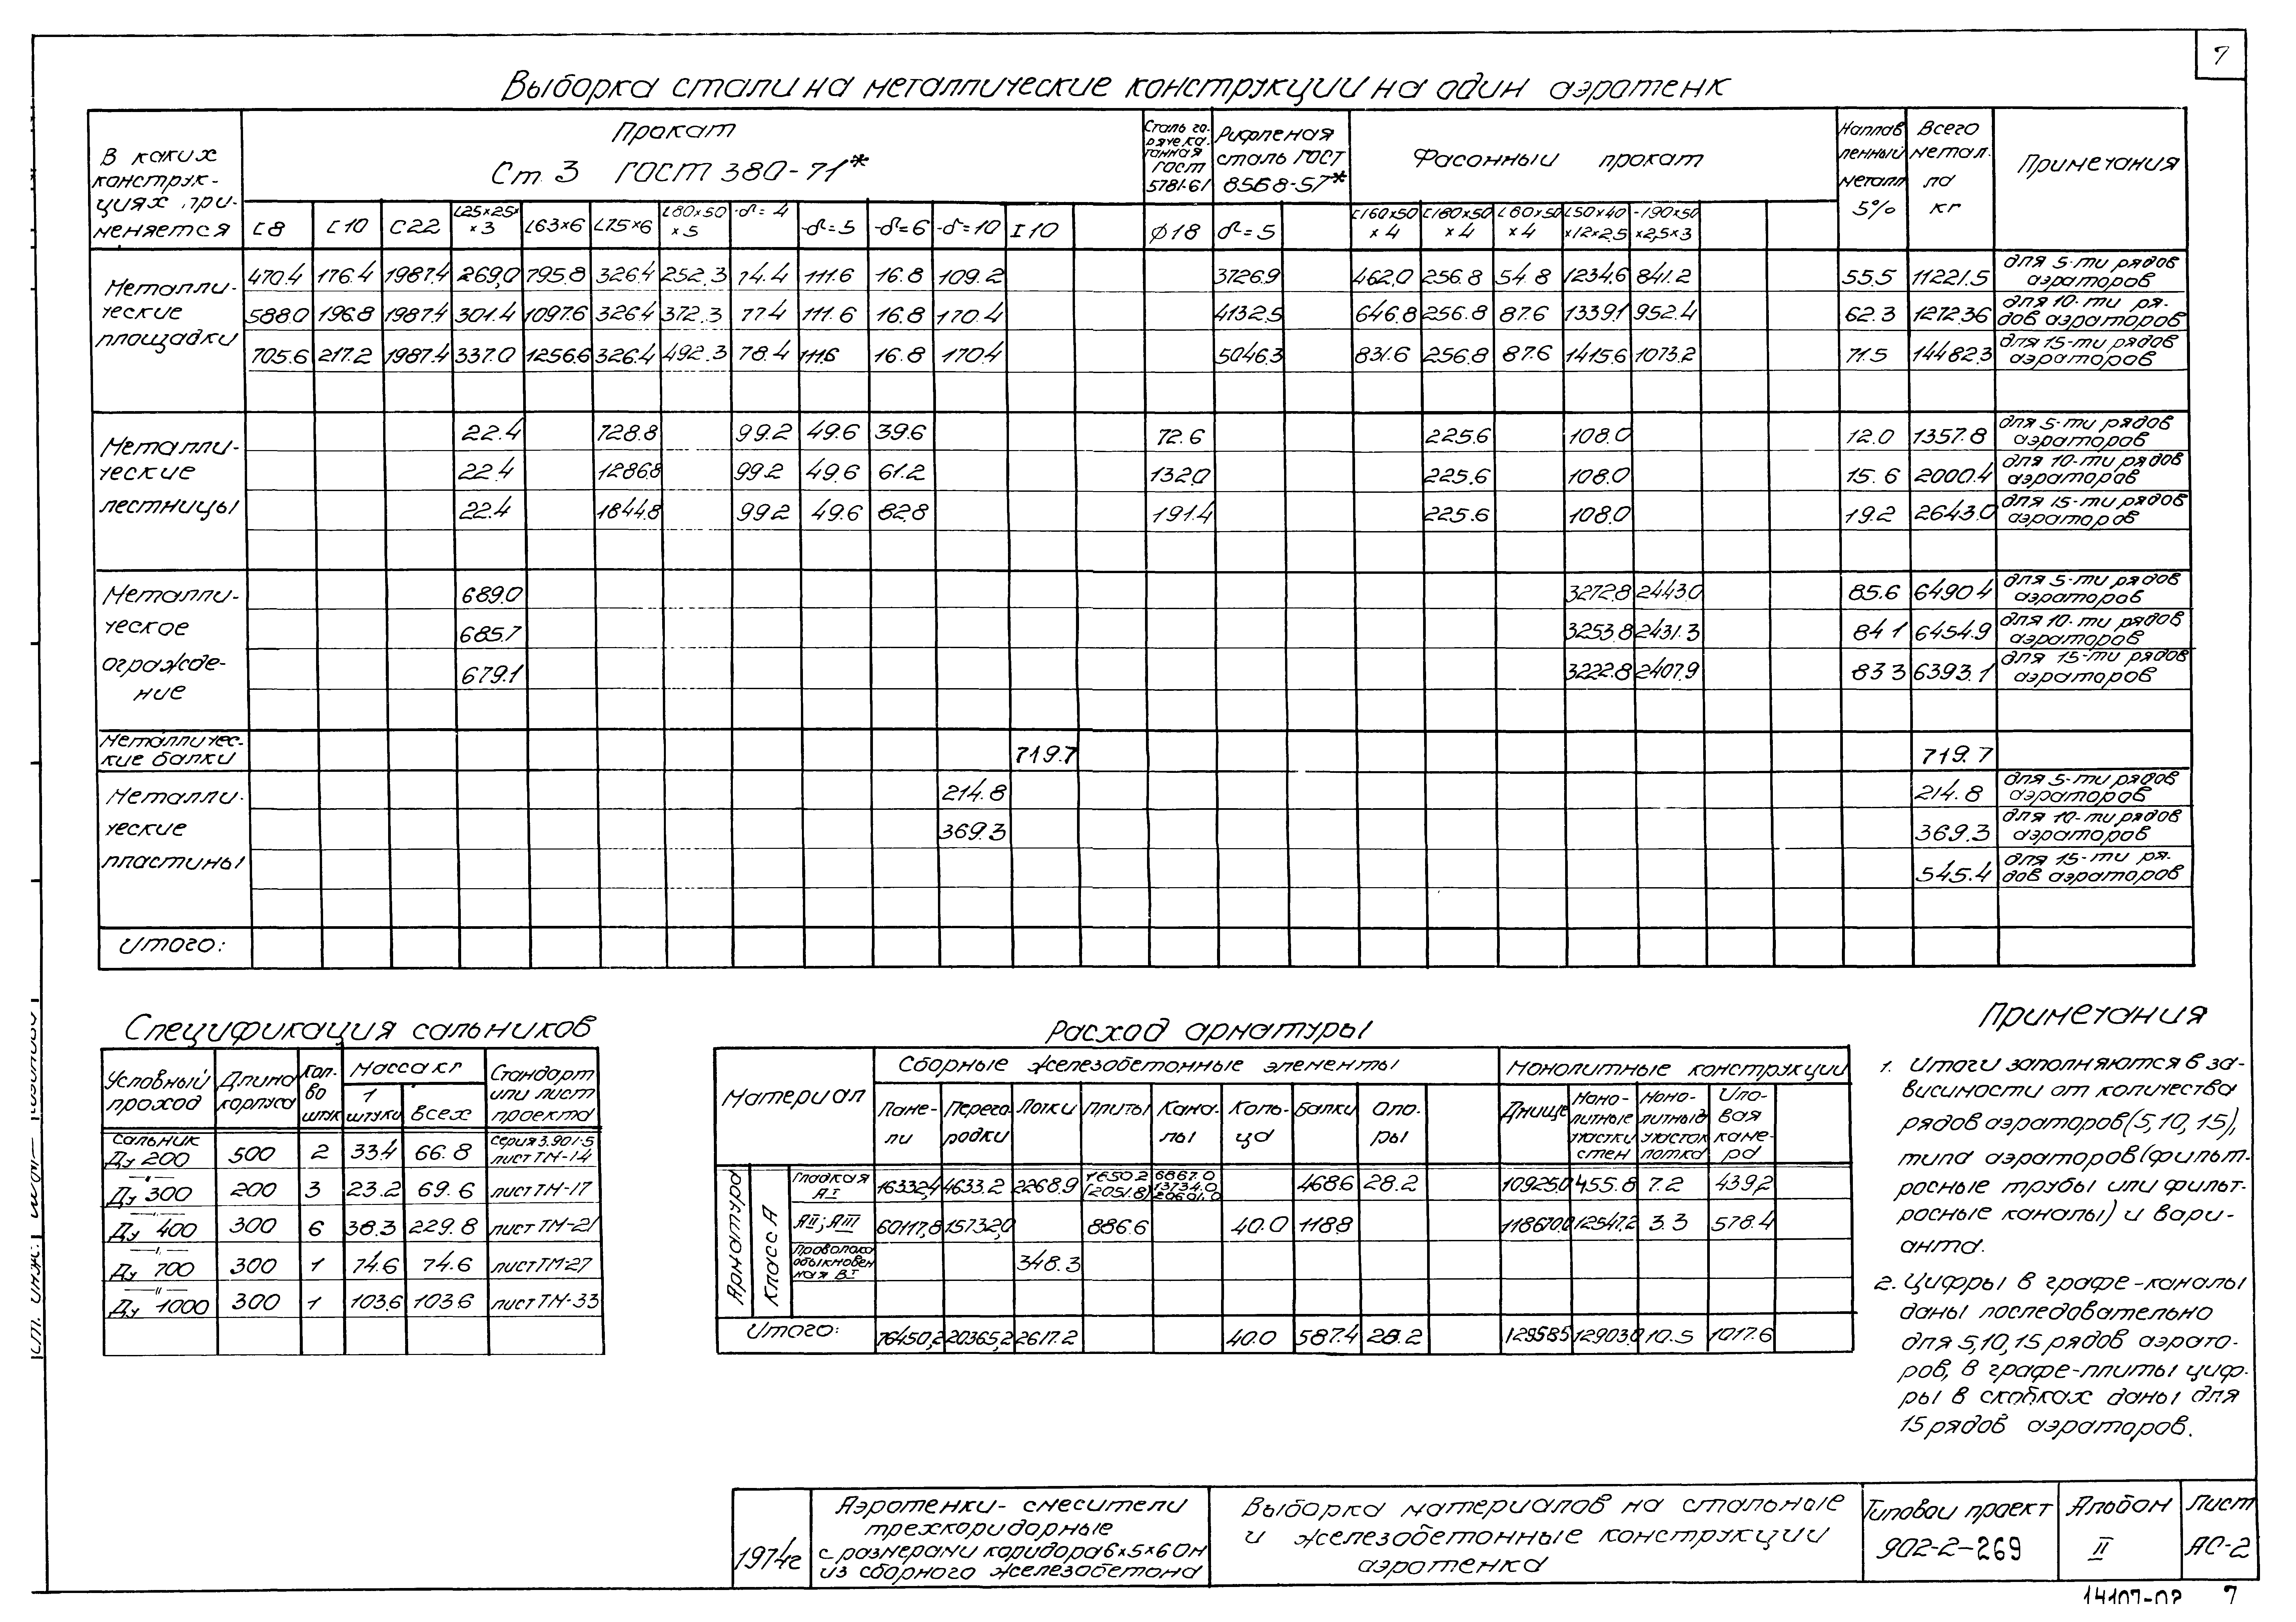 7
Выборка стали на металлические конструкции на один аэротенк
В каких конструкциях применяется | Прокат Ст. 3 ГОСТ 380-71* | Сталь горячекатанная ГОСТ 5781-61 | Рифленая сталь ГОСТ 8568-57* | Фасонный прокат | Наплавленный металл 5% | Всего металла кг | Примечания
[8 | [10 | [22 | L25×25×3 | L63×6 | L75×6 | L80×50×5 | -δ=4 | -δ=5 | -δ=6 | -δ=10 | I10 | Ø18 | δ=5 | [160×50×4 | [180×50×4 | L80×50×4 | L50×40×12×2,5 | -190×50×2,5×3
Металлические площадки
470.4 | 176.4 | 1987.4 | 269,0 | 795.8 | 326.4 | 252.3 | 74.4 | 111.6 | 16.8 | 109.2 | 3726.9 | 462.0 | 256.8 | 54.8 | 1234.6 | 841.2 | 55.5 | 11221.5 | для 5-ти рядов аэраторов
588.0 | 196.8 | 1987.4 | 301.4 | 1097.6 | 326.4 | 372.3 | 77.4 | 111.6 | 16.8 | 170.4 | 4132.5 | 646.8 | 256.8 | 87.6 | 1339.1 | 952.4 | 62.3 | 12723.6 | для 10-ти рядов аэраторов
705.6 | 217.2 | 1987.4 | 337.0 | 1256.6 | 326.4 | 492.3 | 78.4 | 111.6 | 16.8 | 170.4 | 5046.3 | 831.6 | 256.8 | 87.6 | 1415.6 | 1073.2 | 71.5 | 14482.3 | для 15-ти рядов аэраторов
Металлические лестницы
22.4 | 728.8 | 99.2 | 49.6 | 39.6 | 72.6 | 225.6 | 108.0 | 12.0 | 1357.8 | для 5-ти рядов аэраторов
22.4 | 1286.8 | 99.2 | 49.6 | 61.2 | 132.0 | 225.6 | 108.0 | 15.6 | 2000.4 | для 10-ти рядов аэраторов
22.4 | 1844.8 | 99.2 | 49.6 | 82.8 | 191.4 | 225.6 | 108.0 | 19.2 | 2643.0 | для 15-ти рядов аэраторов
Металлическое ограждение
689.0 | 3272.8 | 2443.0 | 85.6 | 6490.4 | для 5-ти рядов аэраторов
685.7 | 3253.8 | 2431.3 | 84.1 | 6454.9 | для 10-ти рядов аэраторов
679.1 | 3222.8 | 2407.9 | 83.3 | 6393.1 | для 15-ти рядов аэраторов
Металлические балки | 719.7 | 719.7
Металлические пластины
214.8 | 214.8 | для 5-ти рядов аэраторов
369.3 | 369.3 | для 10-ти рядов аэраторов
545.4 | для 15-ти рядов аэраторов
Итого:
Спецификация сальников
Условный проход | Длина корпуса | Кол-во штук | Масса кг | Стандарт или лист проекта
1 штуки | Всех
Сальник Ду 200 | 500 | 2 | 33.4 | 66.8 | Серия 3.901-5 лист ТМ-14
—"— Ду 300 | 200 | 3 | 23.2 | 69.6 | лист ТМ-17
—"— Ду 400 | 300 | 6 | 38.3 | 229.8 | лист ТМ-21
—"— Ду 700 | 300 | 1 | 74.6 | 74.6 | лист ТМ-27
—"— Ду 1000 | 300 | 1 | 103.6 | 103.6 | лист ТМ-33
Расход арматуры
Материал | Сборные железобетонные элементы | Монолитные конструкции
Панели | Перегородки | Лотки | Плиты | Каналы | Кольца | Балки | Опоры | Днище | Монолитные участки стен | Монолитный участок лотка | Иловая камера
Арматура Класс А
Гладкая АI | 16332,4 | 4633.2 | 2268.9 | 1650.2 (2051.8) | 6867.0 13734.0 20601.0 | 468.6 | 28.2 | 10925.0 | 455.8 | 7.2 | 439,2
АII; АIII | 60117,8 | 15732,0 | 886.6 | 40.0 | 118.8 | 118670.0 | 12547.2 | 3.3 | 578.4
Проволока обыкновенная ВI | 348.3
Итого: | 76450,2 | 20365,2 | 2617.2 | 40.0 | 587.4 | 28.2 | 129585 | 12903.0 | 10.5 | 1017.6
Примечания
1. Итоги заполняются в за-
висимости от количества
рядов аэраторов (5, 10, 15),
типа аэраторов (фильт-
росные трубы или фильт-
росные каналы) и вари-
анта.
2. Цифры в графе-каналы
даны последовательно
для 5,10,15 рядов аэрато-
ров, в графе-плиты циф-
ры в скобках даны для
15 рядов аэраторов.
1974г
Аэротенки-смесители
трехкоридорные
с размерами коридора 6×5×60м
из сборного железобетона
Выборка материалов на стальные
и железобетонные конструкции
аэротенка
Типовой проект
902-2-269
Альбом
II
Лист
АС-2
14107-02 7
Ст. инж.